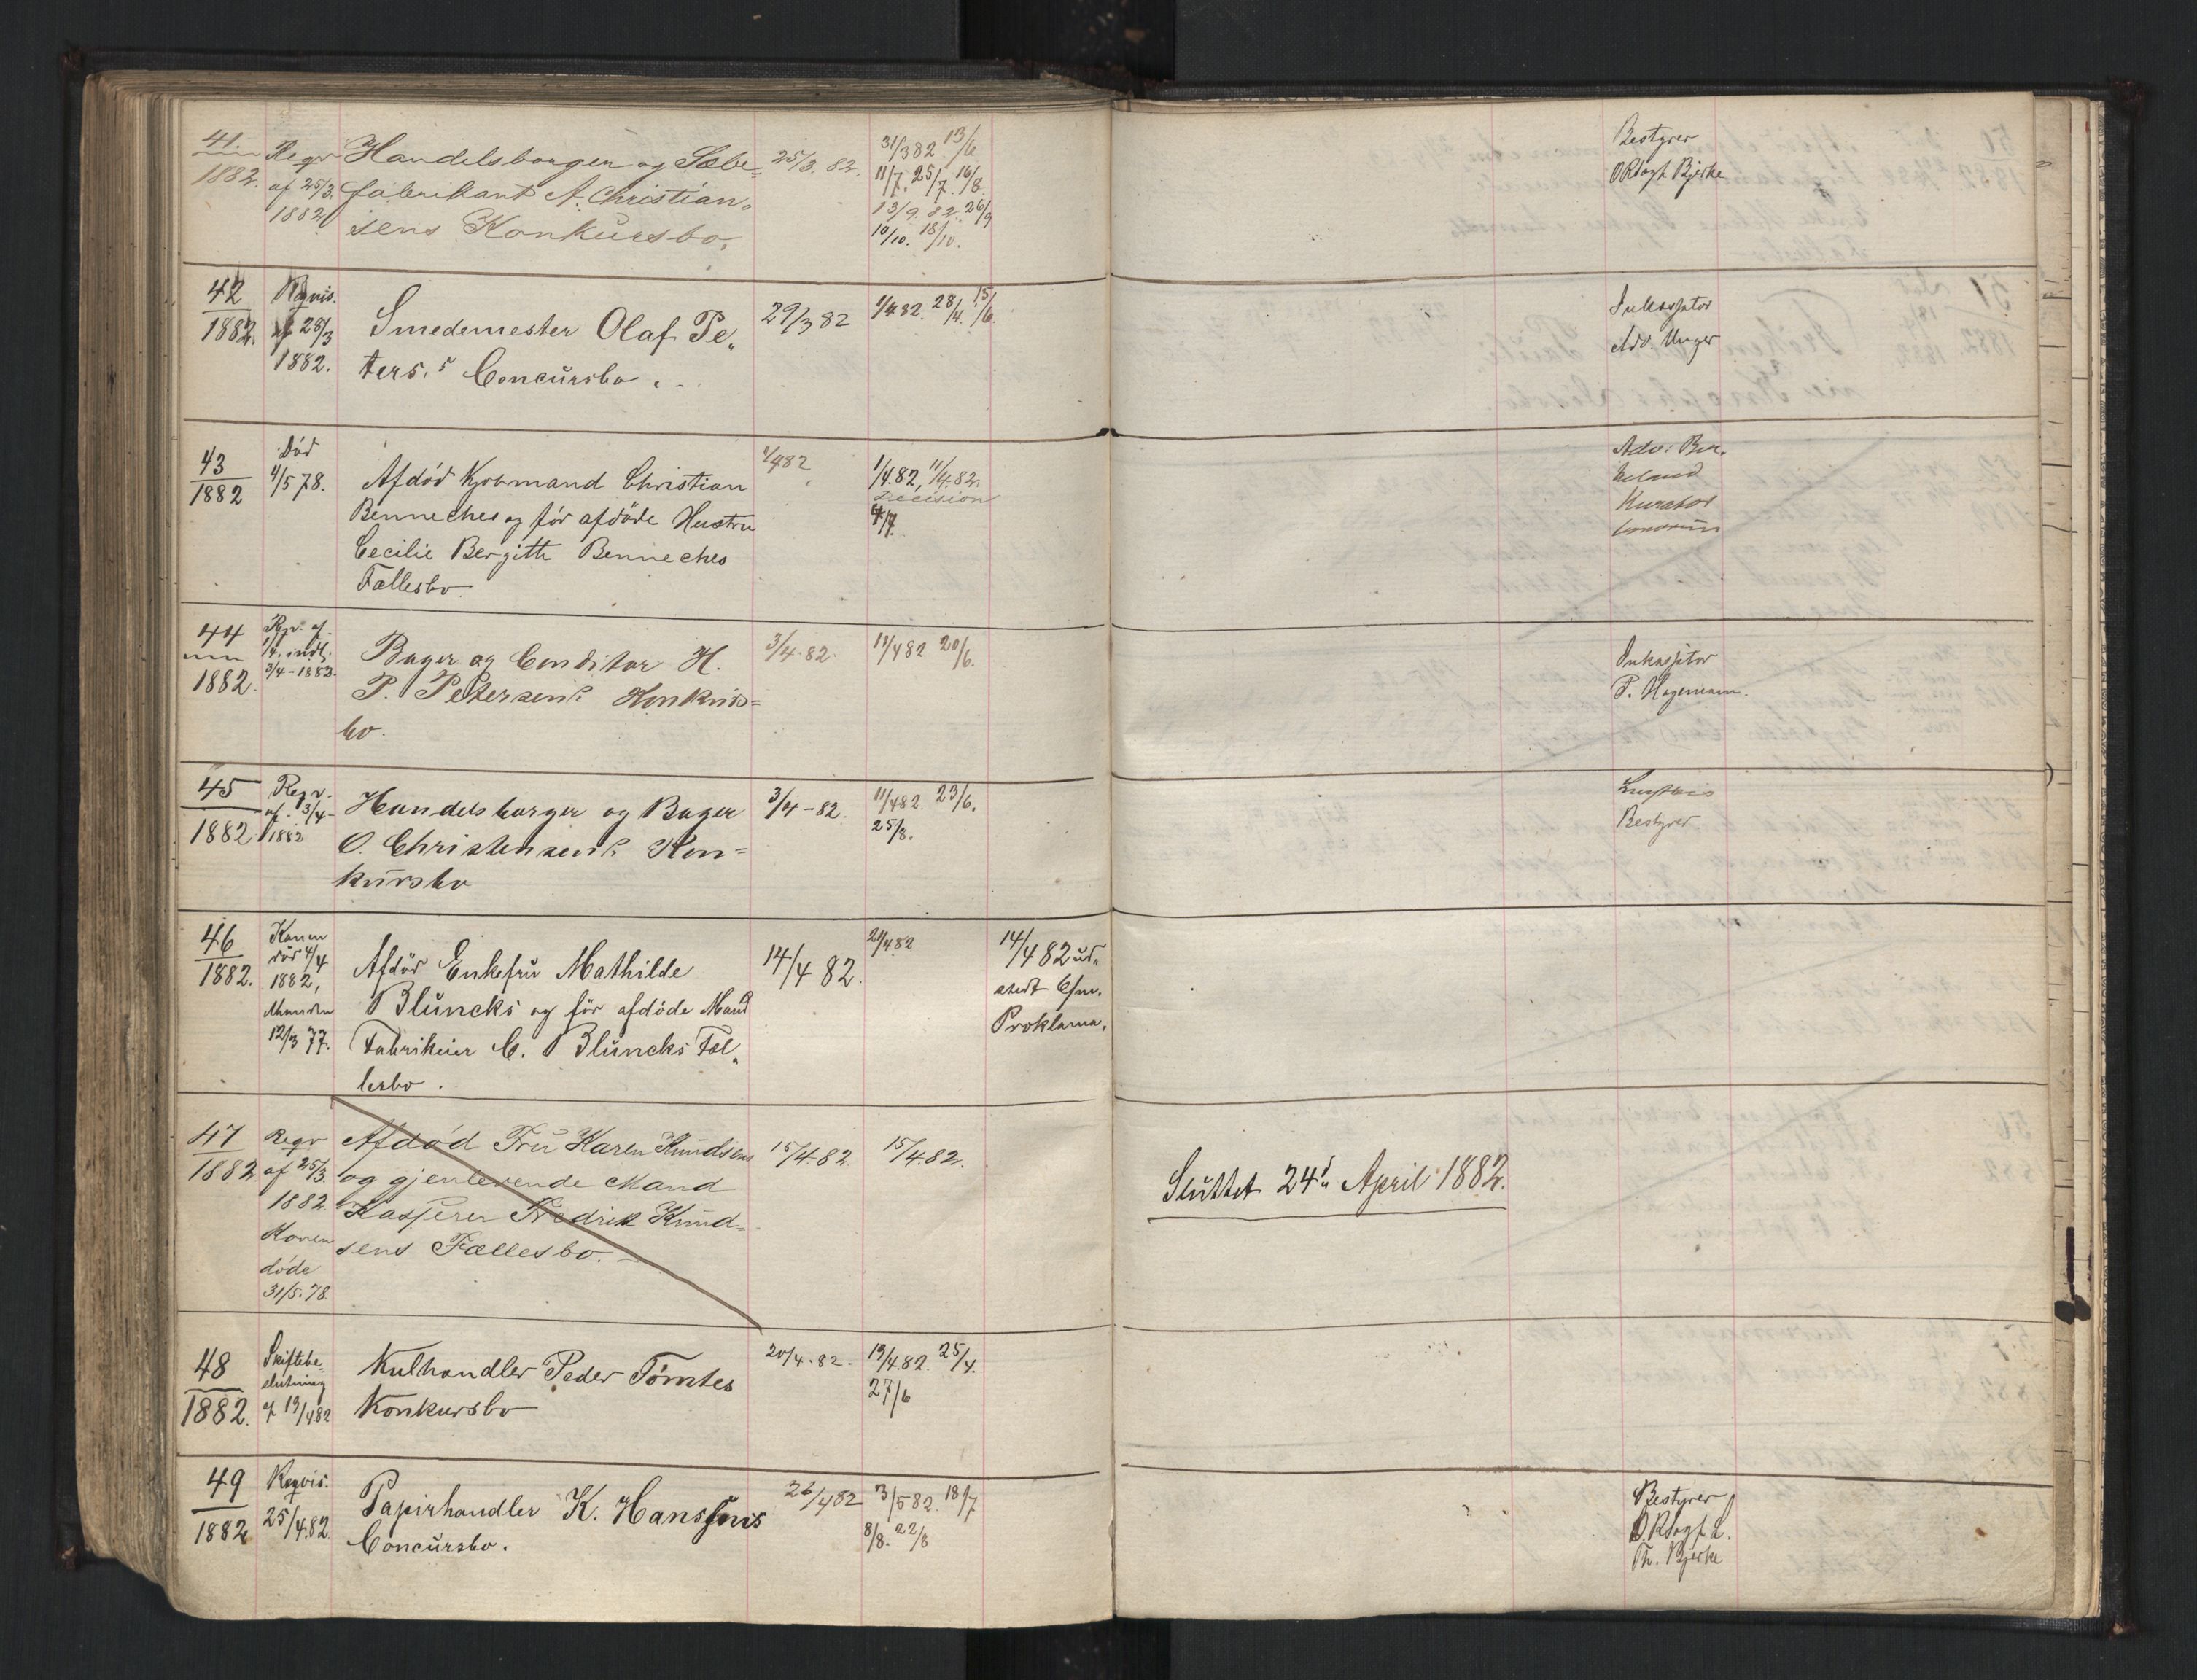 41
1882.
Reqv
af 25/3.
1882
Handelsborger og Sæbe=
fabrikant A. Christian„
sens Konkursbo.
25/3. 82.
31/3 82 13/6
11/7. 25/7. 16/8.
13/9. 82. 26/9
10/10. 18/10.
Bestyrer
ORSagf. Bjerke
42
1882.
Reqvis.
af 28/3
1882.
Smedemester Olaf Pe„
ters.s Concursbo.
29/3 82
1/4.82. 28/4. 15/6.
Inkassator
Adv. Unger
43
1882
Död
4/5 78.
Afdöd Kjøbmand Christian
Benneches og för afdöde Hustru
Cecilie Bergitte Benneches
Fællesbo.
1/4 82
1/4.82, 11/4.82.
Decision
4/7.
Adv.
Kurator
44
1882.
Reqv. af
1/4. indl.
3/4-1882.
Bager og Conditor H.
P. Petersens Konkurs=
bo.
3/4.82.
11/4 82 20/6.
Inkassator
P. Hagemann.
45
1882
Reqv.
af 3/4-
1882
Handelsborger og Bager
O. Christensens Kon=
kursbo
3/4-82.
11/4 82. 23/6.
25/8.
Bestyrer.
46
1882.
Konen
död 4/4
1882,
Manden
12/3 77.
Afdöd Enkefru Mathilde
Bluncks og för afdöde Mand
Fabrikeier C. Bluncks Fæl„
lesbo.
14/4 82.
21/4 82
14/4 82 ud„
stedt 6/m.
Proklama.
47
1882
Reqv
af 25/3.
1882
Konen
döde
31/5.78.
Afdöd Fru Karen Knudsens
og gjenlevende Mand
Kasserer Fredrik Knud=
sens Fællesbo.
15/4.82
15/4.82.
Sluttet 24d April 1882.
48
1882.
Skiftebe„
slutning
af 19/4 82
Kulhandler Peder Tömtes
Konkursbo
20/4.82.
19/4.82. 25/4.
27/6
49
1882
Reqvis.
25/4.82.
Papirhandler K. Hanssens
Concursbo.
26/4 82
3/5 82. 18/7
8/8. 22/8
Bestyrer
O.RSagf.
Th. Bjerke